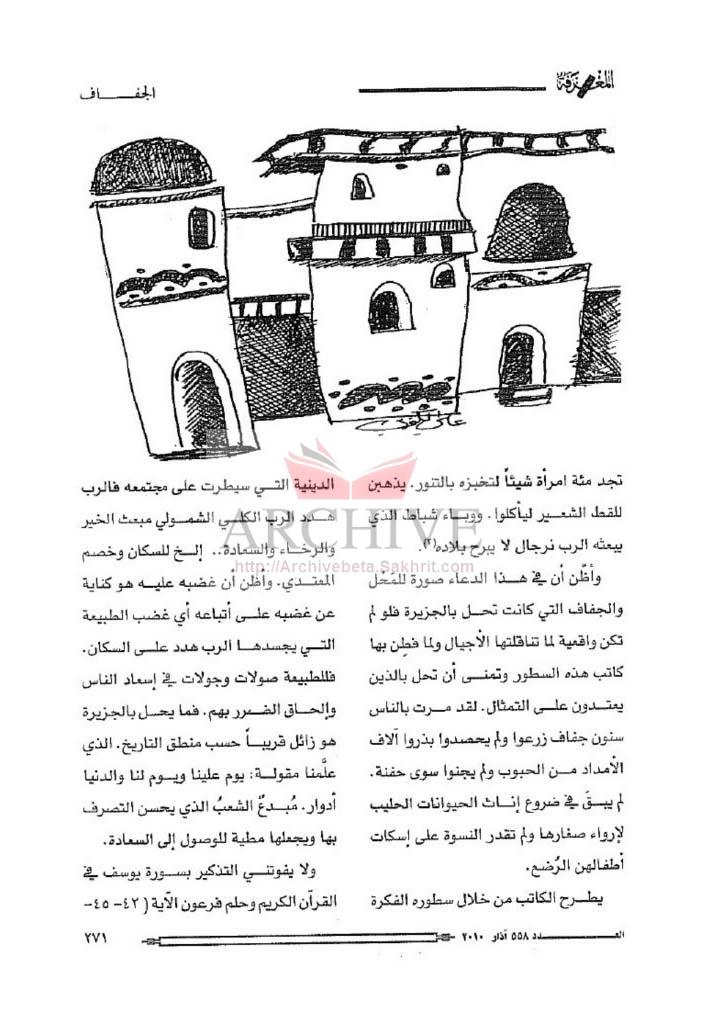 المعرفة
الجفـــــاف
تجد مئة امرأة شيئاً لتخبزه بالتنور. يذهبن
للقط الشعير ليأكلوا. ووباء شباط الذي
يبعثه الرب نرجال لا يبرح بلاده(٣).
وأظّن أن في هذا الدعاء صورة للمَحْل
والجفاف التي كانت تحل بالجزيرة فلو لم
تكن واقعية لما تناقلتها الأجيال ولما فطِن بها
كاتب هذه السطور وتمنى أن تحل بالذين
يعتدون على التمثال. لقد مرت بالناس
سنون جفاف زرعوا ولم يحصدوا بذروا آلاف
الأمداد من الحبوب ولم يجنوا سوى حفنة.
لم يبقَ في ضروع إناث الحيوانات الحليب
لإرواء صغارها ولم تقدر النسوة على إسكات
أطفالهن الرُضع.
يطرح الكاتب من خلال سطوره الفكرة
الدينية التي سيطرت على مجتمعه فالرب
هدد الرب الكلي الشمولي مبعث الخير
والرخاء والسعادة.. إلخ للسكان وخصم
المعتدي. وأظن أن غضبه عليه هو كناية
عن غضبه على أتباعه أي غضب الطبيعة
التي يجسدها الرب هدد على السكان.
فللطبيعة صولات وجولات في إسعاد الناس
وإلحاق الضرر بهم. فما يحل بالجزيرة
هو زائل قريباً حسب منطق التاريخ. الذي
علَّمنا مقولة: يوم علينا ويوم لنا والدنيا
أدوار. مُبدعٌ الشعبُ الذي يحسن التصرف
بها ويجعلها مطية للوصول إلى السعادة.
ولا يفوتني التذكير بسورة يوسف في
القرآن الكريم وحلم فرعون الآية (٤٢- ٤٥-
ARCHIVE
http://Archivebeta.Sakhrit.com
العـــــدد ٥٥٨ آذار ٢٠١٠
٢٧١